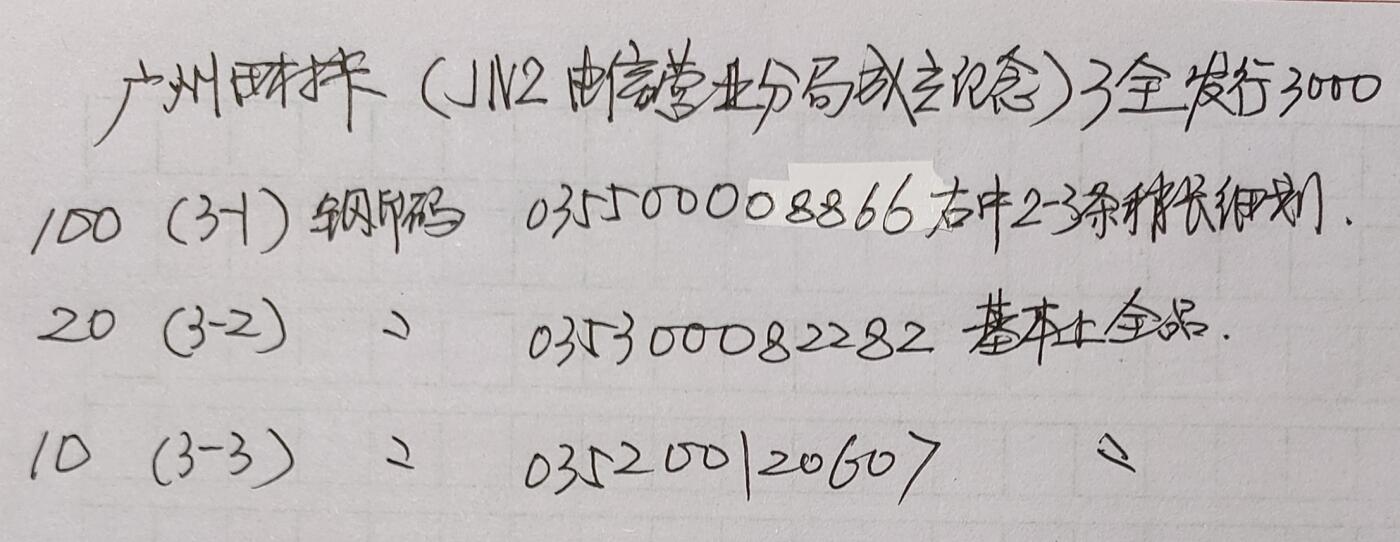 广州田村卡（JN2电信营业分局成立纪念）3全发行3000
100 (3-1) 钢印码 035500008866 右中2-3条稍长细划.
20 (3-2) 〃 035300082282 基本上全品.
10 (3-3) 〃 035200120607 〃